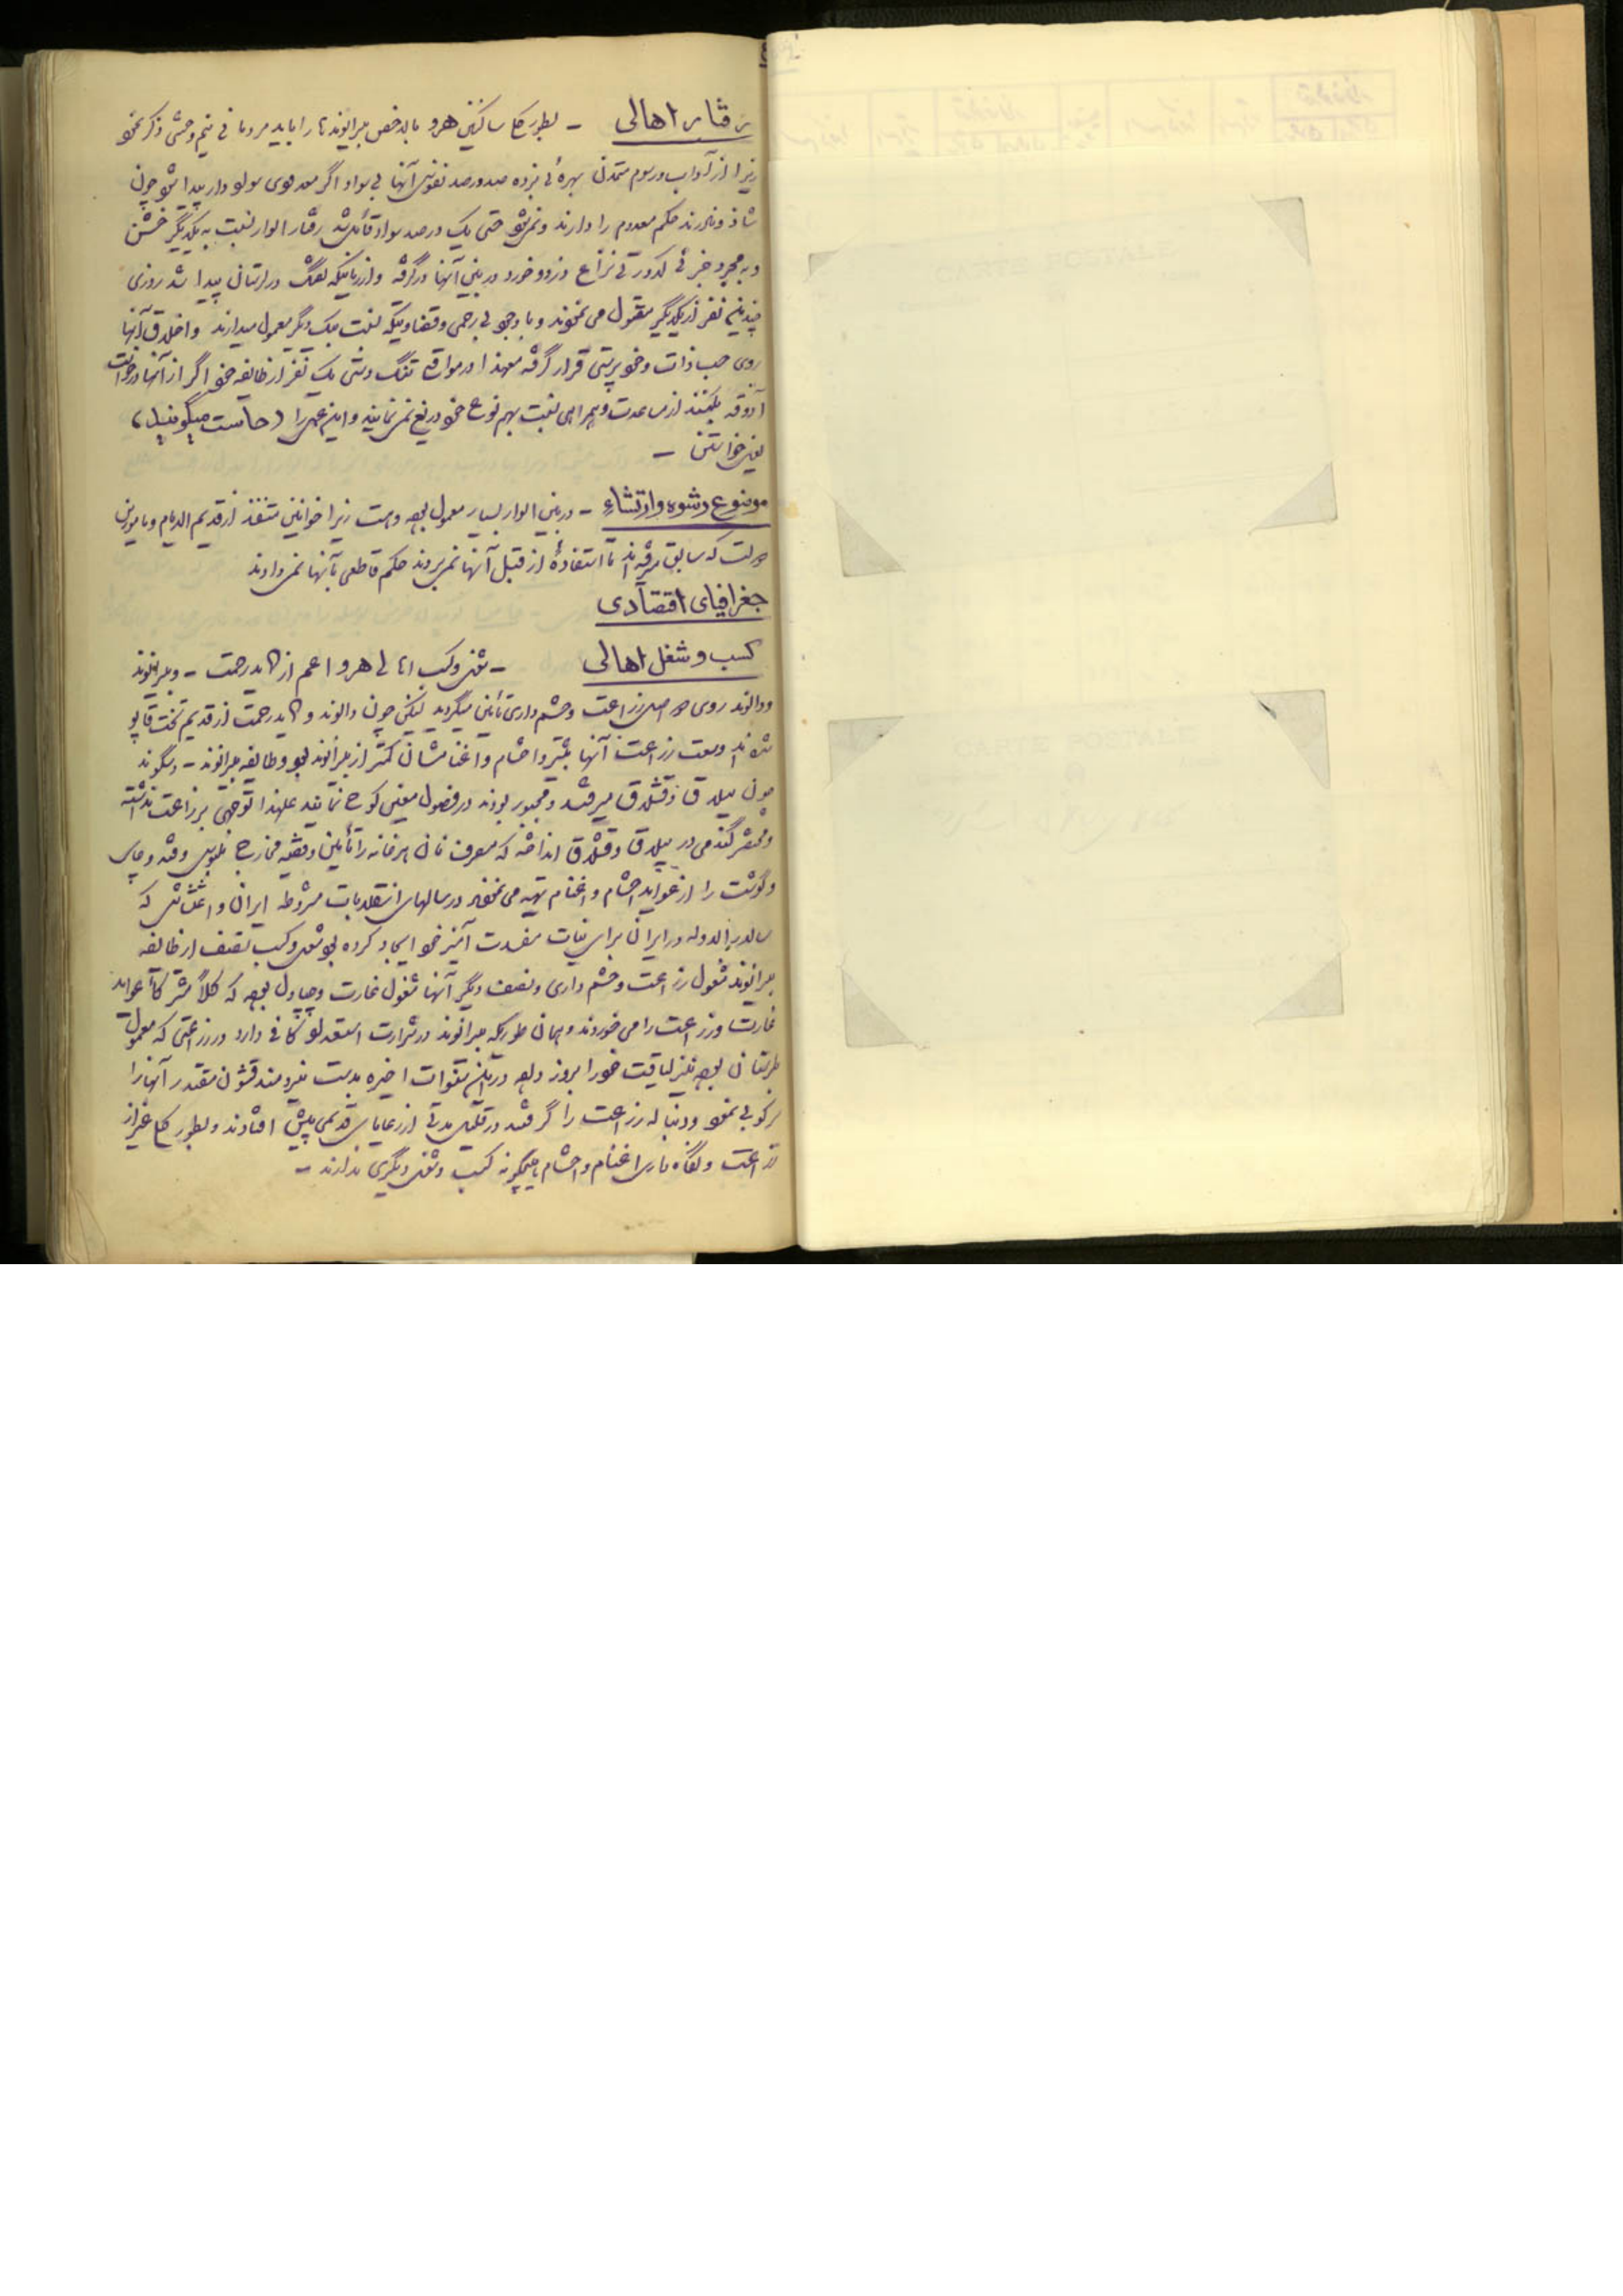 رفتار اهالی – بطور کلی ساکنین هرو بالاخص بیرانوندها را باید مردمانی نیم وحشی ذکر نمود
زیرا از آداب و رسوم تمدن بهرهٔ نبرده صد در صد نفوس آنها بی سواد اگر معدودی سواددار پیدا شود چون
شاذ و نادرند حکم معدوم را دارند و نمیشود حتی یک درصد سواد قائل شد رفتار الوار نسبت به یکدیگر خشن
و به مجرد جزئی کدورتی نزاع و زد و خورد در بین آنها در گرفته و از زمانیکه تفنگ در لرستان پیدا شد روزی
چندین نفر از یکدیگر مقتول می نمودند و با وجود بی رحمی و قساوتیکه نسبت بیک دیگر معمول میدارند و اخلاق آنها
روی حب ذات و خود پرستی قرار گرفته معهذا در مواقع تنگ دستی یک نفر از طایفه خود اگر از آنها درخواست
آذوقه بکنند از مساعدت و همراهی نسبت بهم نوع خود دریغ نمی نمایند و این عمل را (خاست میگویند)
یعنی خواستن –
موضوع رشوه و ارتشاء – در بین الوار بسیار معمول بوده و هست زیرا خوانین متنفذ از قدیم الایام و مامورین
دولت که سابق میرفته اند تا استفادهٔ از قبل آنها نمی بردند حکم قاطعی بآنها نمی دادند
جغرافیای اقتصادی
کسب و شغل اهالی – شغل و کسب اهالی هرو اعم از دالوند رحمت – و بیرانوند
و دالوند روی دو اصل زراعت و حشم داری تأمین میگردید لیکن چون دالوند و رحمت از قدیم تخت قاپو
شده اند وسعت زراعت آنها بیشتر و احشام و اغنامشان کمتر از بیرانوند بود و طایفه بیرانوند – و سگوند
چون ییلاق و قشلاق میرفتند و مجبور بودند در فصول معینی کوچ نمایند علیهذا توجهی بزراعت نداشته
و مختصر گندمی در ییلاق و قشلاق انداخته که مصرف نان هر خانه را تأمین و بقیه مخارج ملبوس و قند و چای
و گوشت را از عواید احشام و اغنام تهیه می نمودند در سالهای انقلابات مشروطه ایران و اغتشاشی که
سالارالدوله در ایران برای نیات مفسدت آمیز خود ایجاد کرده بود شغل و کسب نصف از طایفه
بیرانوند مشغول زراعت و حشم داری و نصف دیگر آنها مشغول غارت و چپاول بوده که کلاً مشترکاً عواید
غارت و زراعت را می خوردند و همان طوریکه بیرانوند در شرارت استعداد کافی دارد در زراعتی که معمول
لرستان بوده نیز لیاقت خود را بروز داده در این سنوات اخیره بدست نیرومند قشون مقتدر آنها را
سرکوبی نمود و دنباله زراعت را گرفتند در قلیل مدتی از رعایای قدیمی پیش افتادند و بطور کلی غیر از
زراعت و نگاه داری اغنام و احشام هیچگونه کسب و شغل دیگری ندارند –